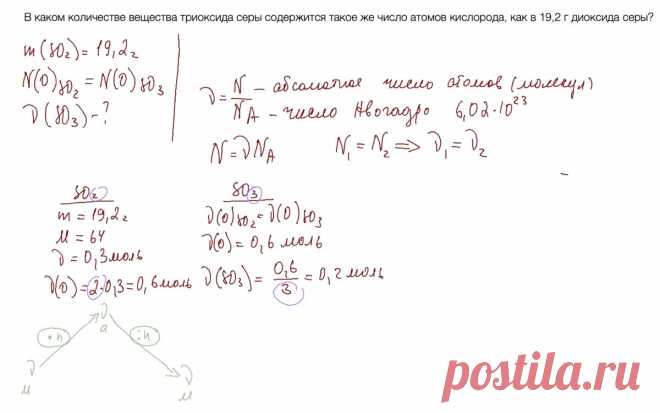 В каком количестве вещества триоксида серы содержится такое же число атомов кислорода, как в 19,2 г диоксида серы?
m(SO₂) = 19,2 г
N(O)SO₂ = N(O)SO₃
ν(SO₃) - ?
ν = N/NA
N – абсолютное число атомов (молекул)
NA – число Авогадро 6,02·10²³
N = νNA
N₁ = N₂ ⟹ ν₁ = ν₂
SO₂
m = 19,2 г
M = 64
ν = 0,3 моль
ν(O) = 2·0,3 = 0,6 моль
SO₃
ν(O)SO₂ = ν(O)SO₃
ν(O) = 0,6 моль
ν(SO₃) = 0,6/3 = 0,2 моль
ν а
·n
:n
ν м
ν м
postila.ru